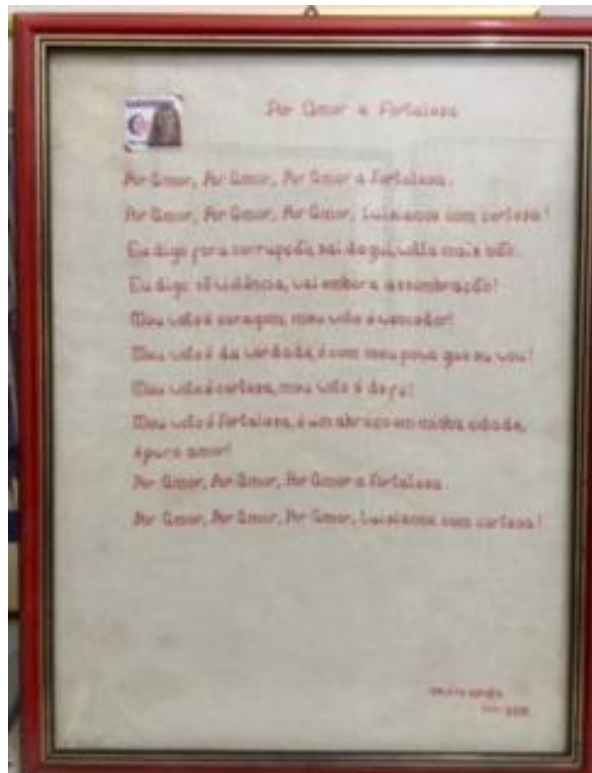 Por Amor a Fortaleza
Por Amor, Por Amor, Por Amor a Fortaleza.
Por Amor, Por Amor, Por Amor, Luizianne com certeza!
Eu digo fora corrupção, sai daqui, volta mais não.
Eu digo ôi violência, vai embora assombração!
Meu voto é coragem, meu voto é vencedor!
Meu voto é da verdade, é com meu povo que eu vou!
Meu voto é certeza, meu voto é de fé!
Meu voto é Fortaleza, é um abraço em minha cidade,
é puro amor!
Por Amor, Por Amor, Por Amor a Fortaleza.
Por Amor, Por Amor, Por Amor, Luizianne com certeza!